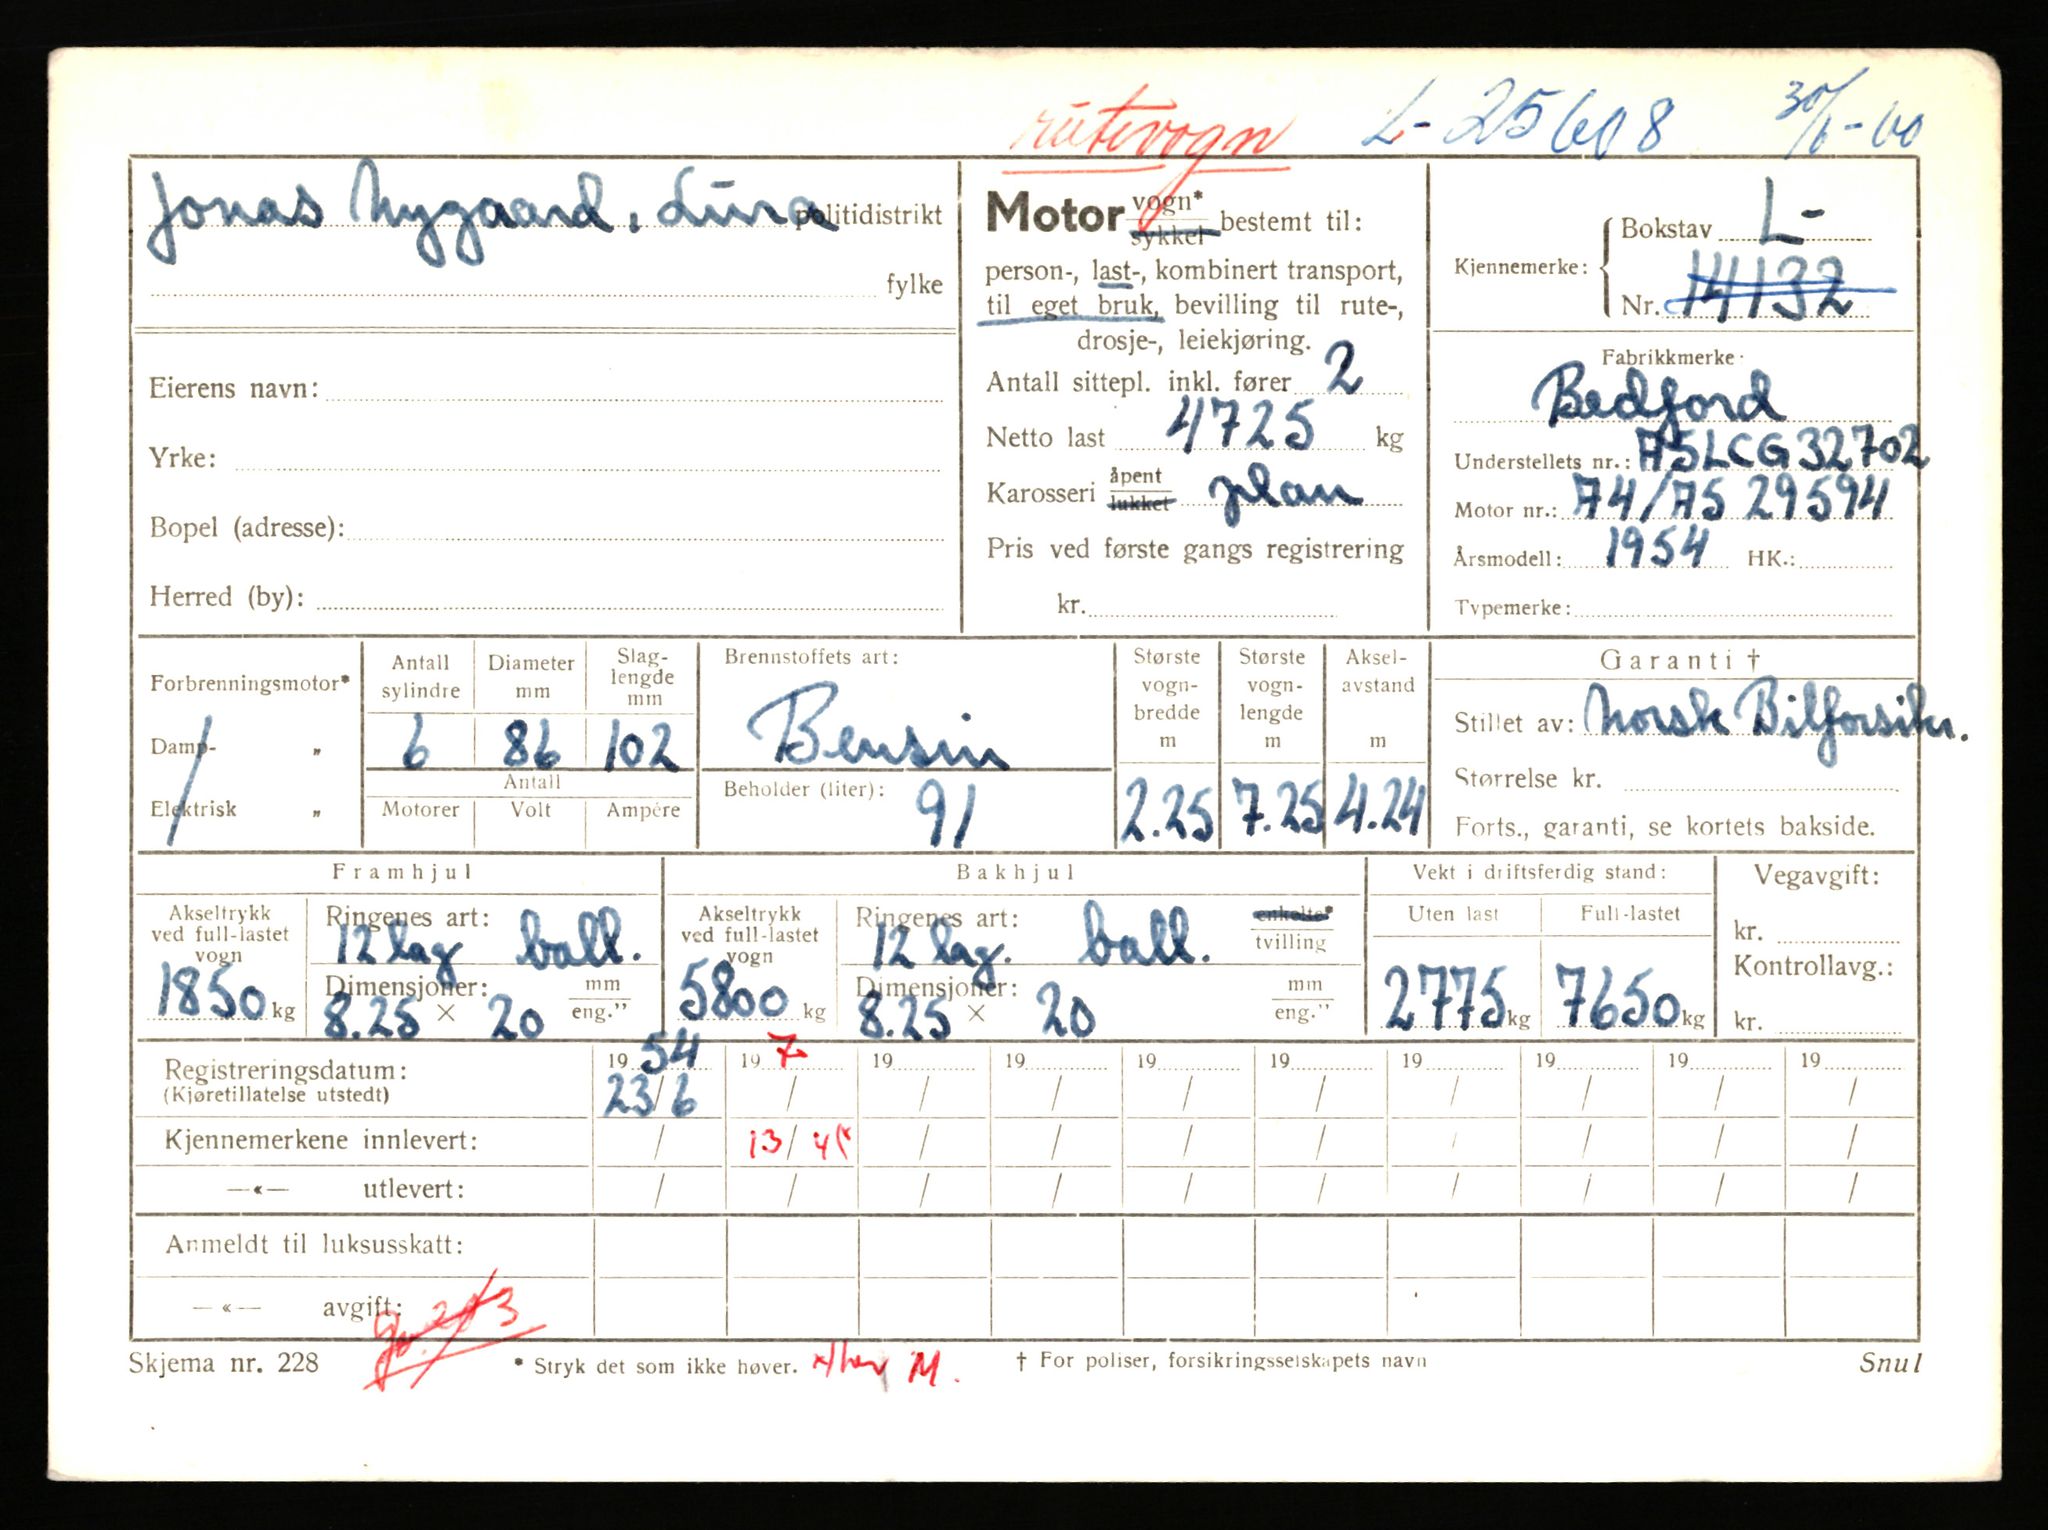 rutevogn L-25608 30/6-60
Jonas Nygaard, Lura politidistrikt
fylke
Eierens navn:
Yrke:
Bopel (adresse):
Herred (by):
Motor vogn* sykkel bestemt til:
person-, last-, kombinert transport,
til eget bruk, bevilling til rute-,
drosje-, leiekjøring.
Antall sittepl. inkl. fører 2
Netto last 4725 kg
Karosseri åpent lukket plan
Pris ved første gangs registrering
kr.
Kjennemerke: Bokstav L-
Nr. 14132
Fabrikkmerke:
Bedford
Understellets nr.: A5LCG32702
Motor nr.: A4/A5 29594
Årsmodell: 1954 HK.:
Typemerke:
Forbrenningsmotor*
Damp- „
Elektrisk „
Antall sylindre 6
Diameter mm 86
Slaglengde mm 102
Antall
Motorer Volt Ampére
Brennstoffets art:
Bensin
Beholder (liter): 91
Største vognbredde m 2.25
Største vognlengde m 7.25
Akselavstand m 4.24
Garanti †
Stillet av: Norsk Bilforsikr.
Størrelse kr.
Forts., garanti, se kortets bakside.
Framhjul
Akseltrykk ved full-lastet vogn 1850 kg
Ringenes art: 12 lag ball.
Dimensjoner: 8.25 × 20 mm eng."
Bakhjul
Akseltrykk ved full-lastet vogn 5800 kg
Ringenes art: 12 lag. ball. enkelte* tvilling
Dimensjoner: 8.25 × 20 mm eng."
Vekt i driftsferdig stand:
Uten last 2775 kg
Full-lastet 7650 kg
Vegavgift:
kr.
Kontrollavg.:
kr.
Registreringsdatum: 19 54 19 7 19 19 19 19 19 19 19 19
(Kjøretillatelse utstedt) 23/6 / / / / / / / / /
Kjennemerkene innlevert: / 13/4 / / / / / / / /
—«— utlevert: / / / / / / / / / /
Anmeldt til luksusskatt:
—«— avgift:
Skjema nr. 228 * Stryk det som ikke høver. M. † For poliser, forsikringsselskapets navn Snul